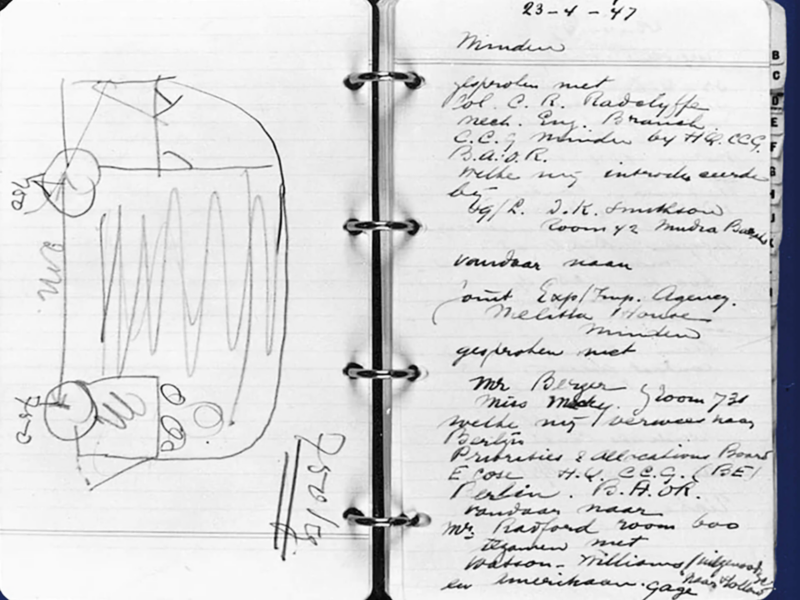 750 kg
23-4-'47
Minden
gesproken met
Col. C. R. Radclyffe
Mech. Eng. Branch
C.C.G Minden by HQ. CCG.
B.A.O.R.
welke mij introduceerde
bij
J.K. Smithson
Room 42 Barracks
vandaar naar
Joint Exp/Imp. Agency.
Melitta House
Minden
gesproken met
Mr Berger Room 731
Miss
welke mij verwees naar
Berlijn
Priorities & Allocations Board
E cose H.Q. C.C.G. (BE)
Berlin. B.A.O.R.
vandaar naar
Mr. Radford room 600
tezamen met
Watson-Williams naar Holland
en Amerikaan. Gage
B
C
D
E
F
G
H